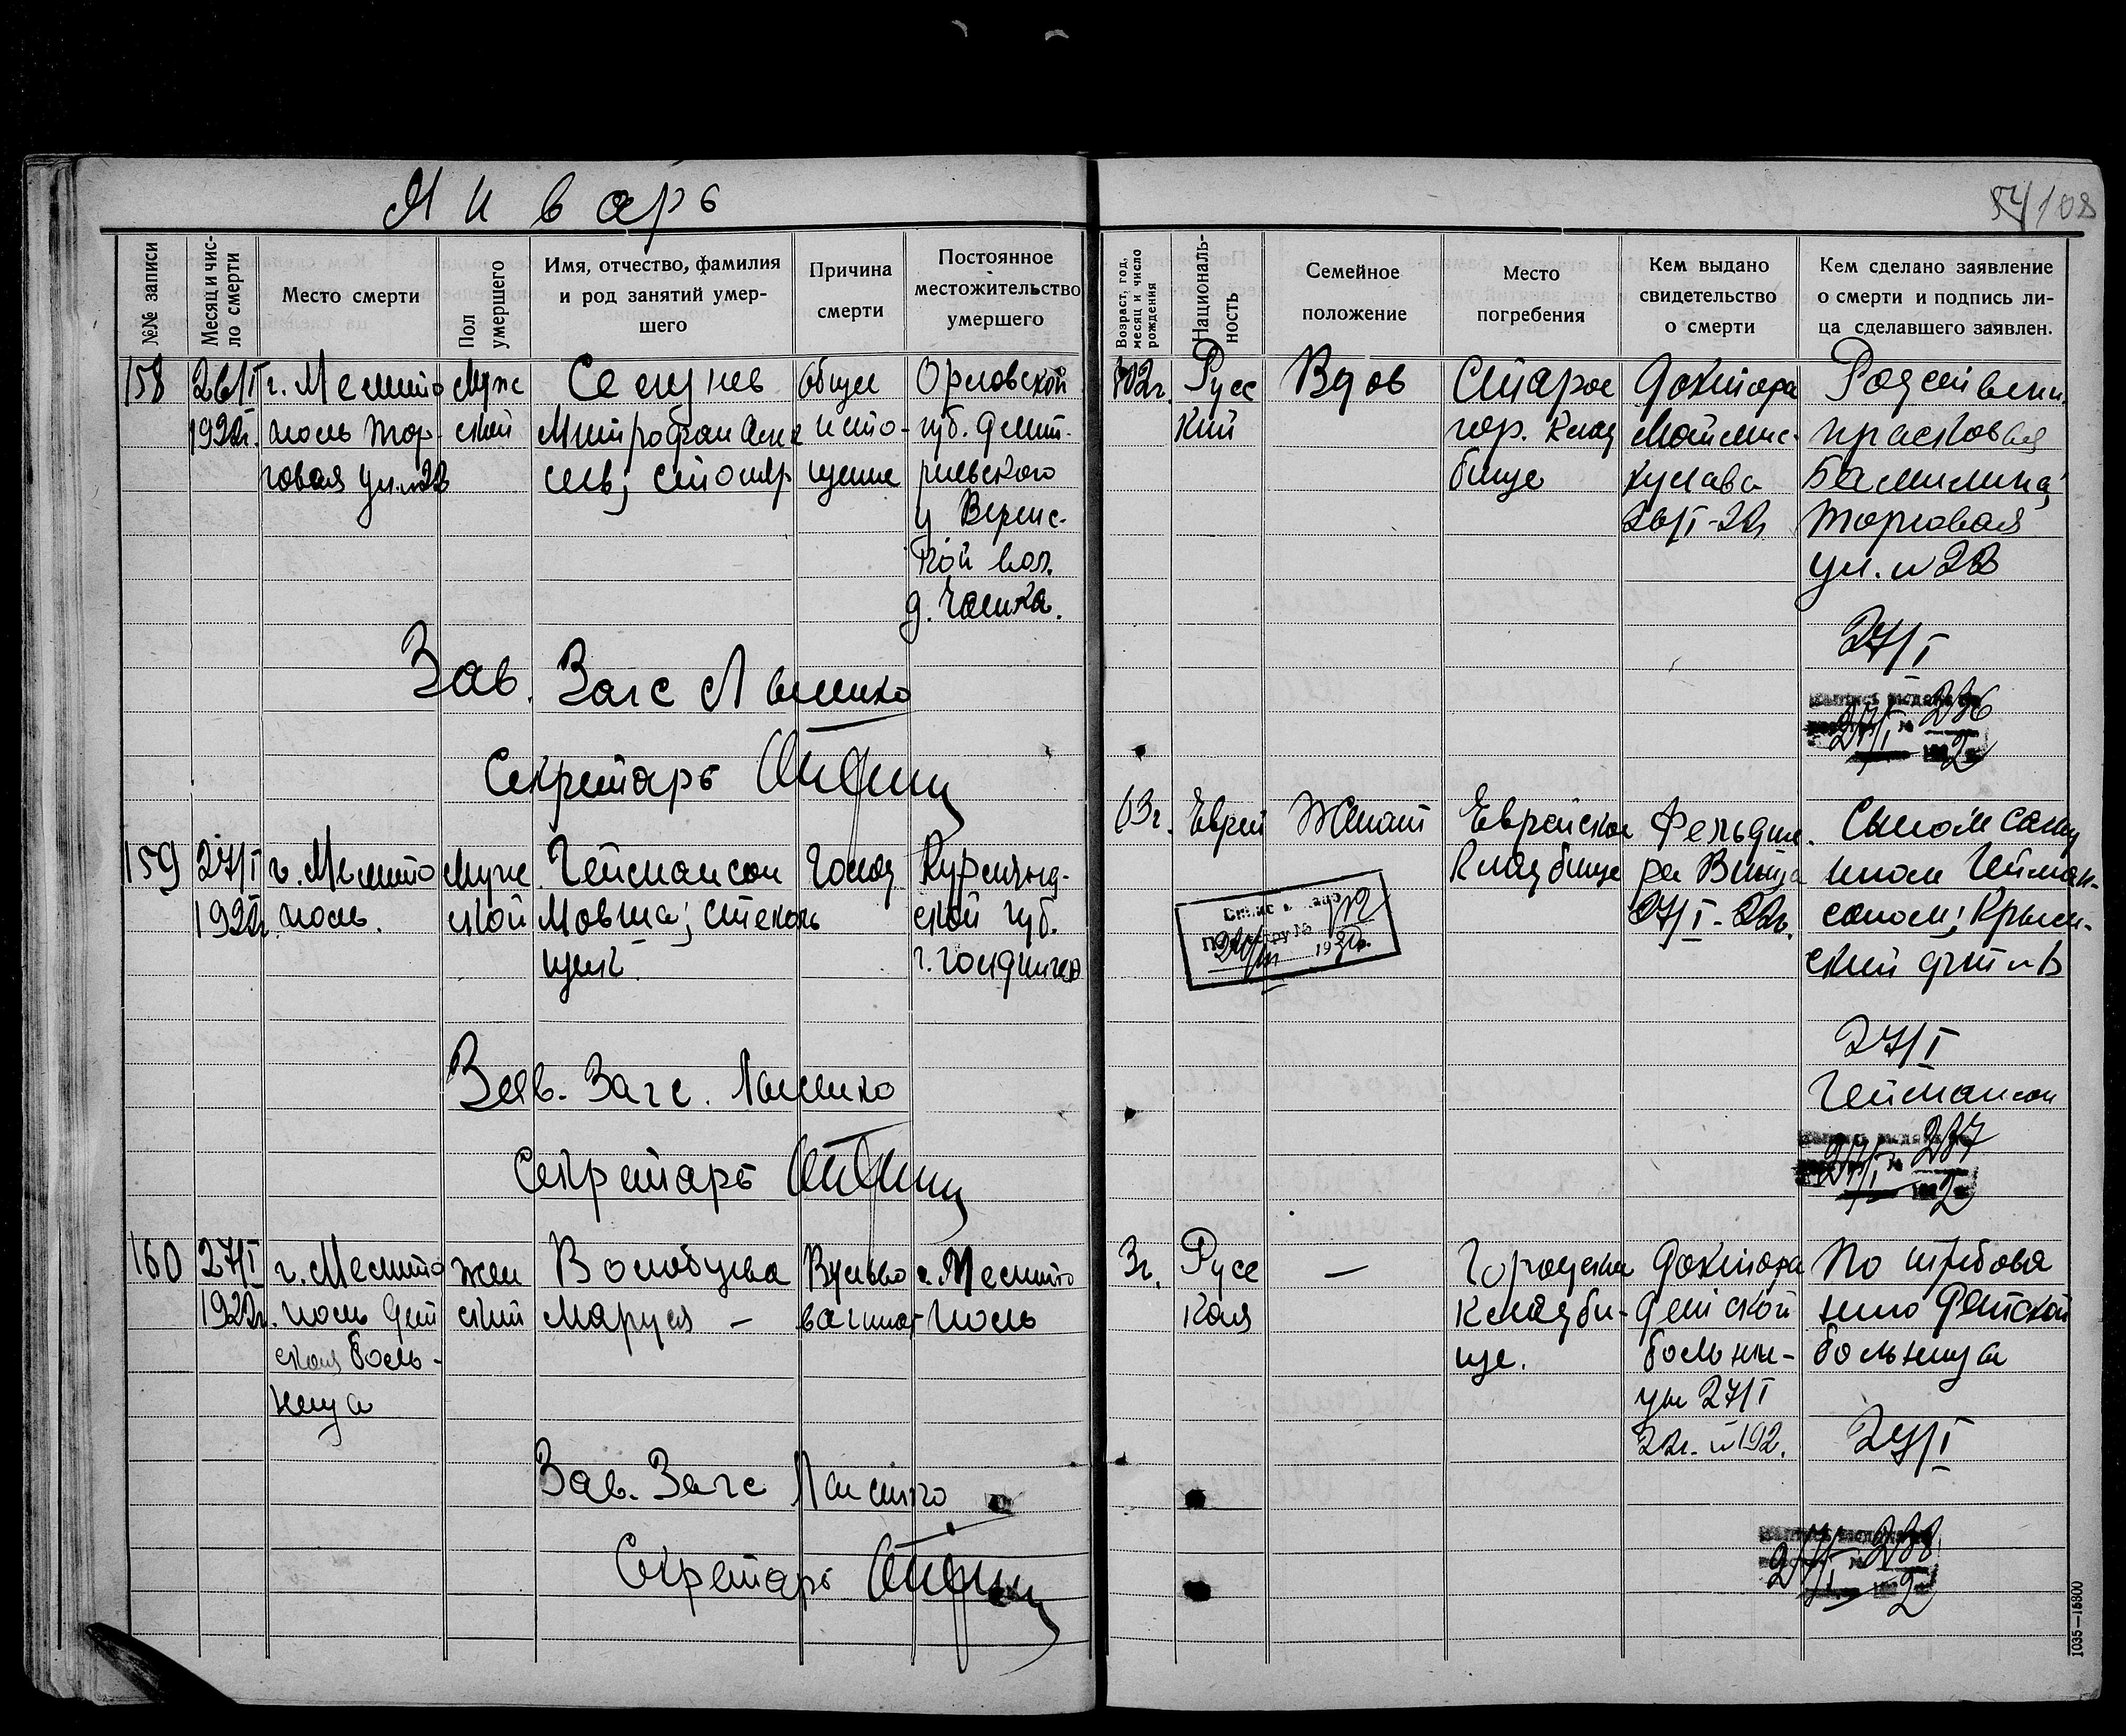 Январь
54/108
№№ записи
Месяц и чис-
ло смерти
Место смерти
Пол
умершего
Имя, отчество, фамилия
и род занятий умер-
шего
Причина
смерти
Постоянное
местожительство
умершего
Возраст, год,
месяц и число
рождения
Националь-
ность
Семейное
положение
Место
погребения
Кем выдано
свидетельство
о смерти
Кем сделано заявление
о смерти и подпись ли-
ца сделавшего заявлен.
158
26/I
1922г.
г. Мелито
поль Тор-
говая ул. №28
Муж
ской
Селунев
Митрофан Алек
сеев; столяр
Общее
исто-
щение
Орловской
губ. Дмит-
риевского
у
вол.
д.
102г.
Русс
кий
Вдов
Старое
гор. Клад
бище
Доктора
26/I-22г
Родствен.
Прасковья
Торговая
ул. №28
27/I
Зав. Загс
Секретарь
27/I № 236
1922
159
27/I
1922г.
г. Мелито
поль.
Муж
ской
Геймансон
Мовша; стеколь
щик
Голод
ской губ.
г. Голдинген
63г.
Еврей
Женат
Еврейское
Кладбище
Фельдше
ра
27/I-22г.
Сыном
Гейман-
соном; Крым-
ский
27/I
Геймансон
Зав. Загс.
Секретарь
27/I № 237
1922
160
27/I
1922г.
г. Мелито
поль Дет
ская боль-
ница
Жен
ский
Волобуева
Маруся —
г. Мелито
поль
3г.
Русс
кая
—
Городское
Кладби-
ще.
Доктора
Детской
больни-
цы 27/I
22г. №192.
По требова
нию Детской
больницы
27/I
Зав. Загс
Секретарь
27/I № 238
1922
1035—15800